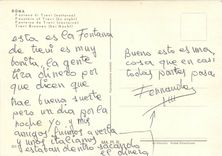 ROMA
Fontana di Trevi (notturno)
Fontaine de Trevi (la nuit)
Fountain of Trevi (by night)
Trevi Brunnen (bei Nacht)
esta es la Fontana
de trevi es muy
bonita, la gente
tira dinero por
que dicen que
trae buena suerte
pero un dia por la
noche yo y mis
amigos fuimos a verla
y unos italianos
estaban dentro sacando
el dinero
Bueno esto es una
cosa que en casi
todas partes pasa
Fernando